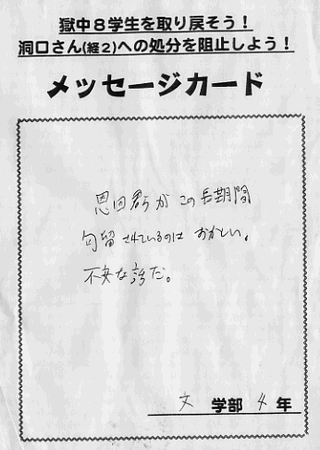 獄中８学生を取り戻そう！
洞口さん(経２)への処分を阻止しよう！
メッセージカード
恩田君らがこの長期間
勾留されているのはおかしい。
不安な話だ。
文 学部 4 年